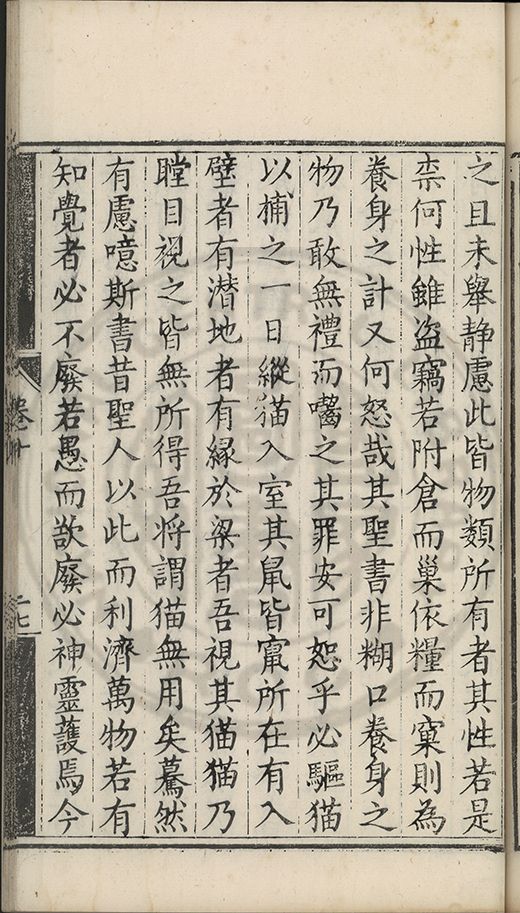 之且未舉静慮此皆物類所有者其性若是
柰何性雖盗竊若附倉而巢依糧而窠則為
養身之計又何怒哉其聖書非糊口養身之
物乃敢無禮而嚙之其罪安可恕乎必驅猫
以捕之一日縱猫入室其鼠皆竄所在有入
壁者有潜地者有縁於梁者吾視其猫猫乃
瞠目視之皆無所得吾将謂猫無用矣驀然
有慮噫斯書昔聖人以此而利濟萬物若有
知覺者必不廢若愚而欲廢必神靈護焉今
卷十